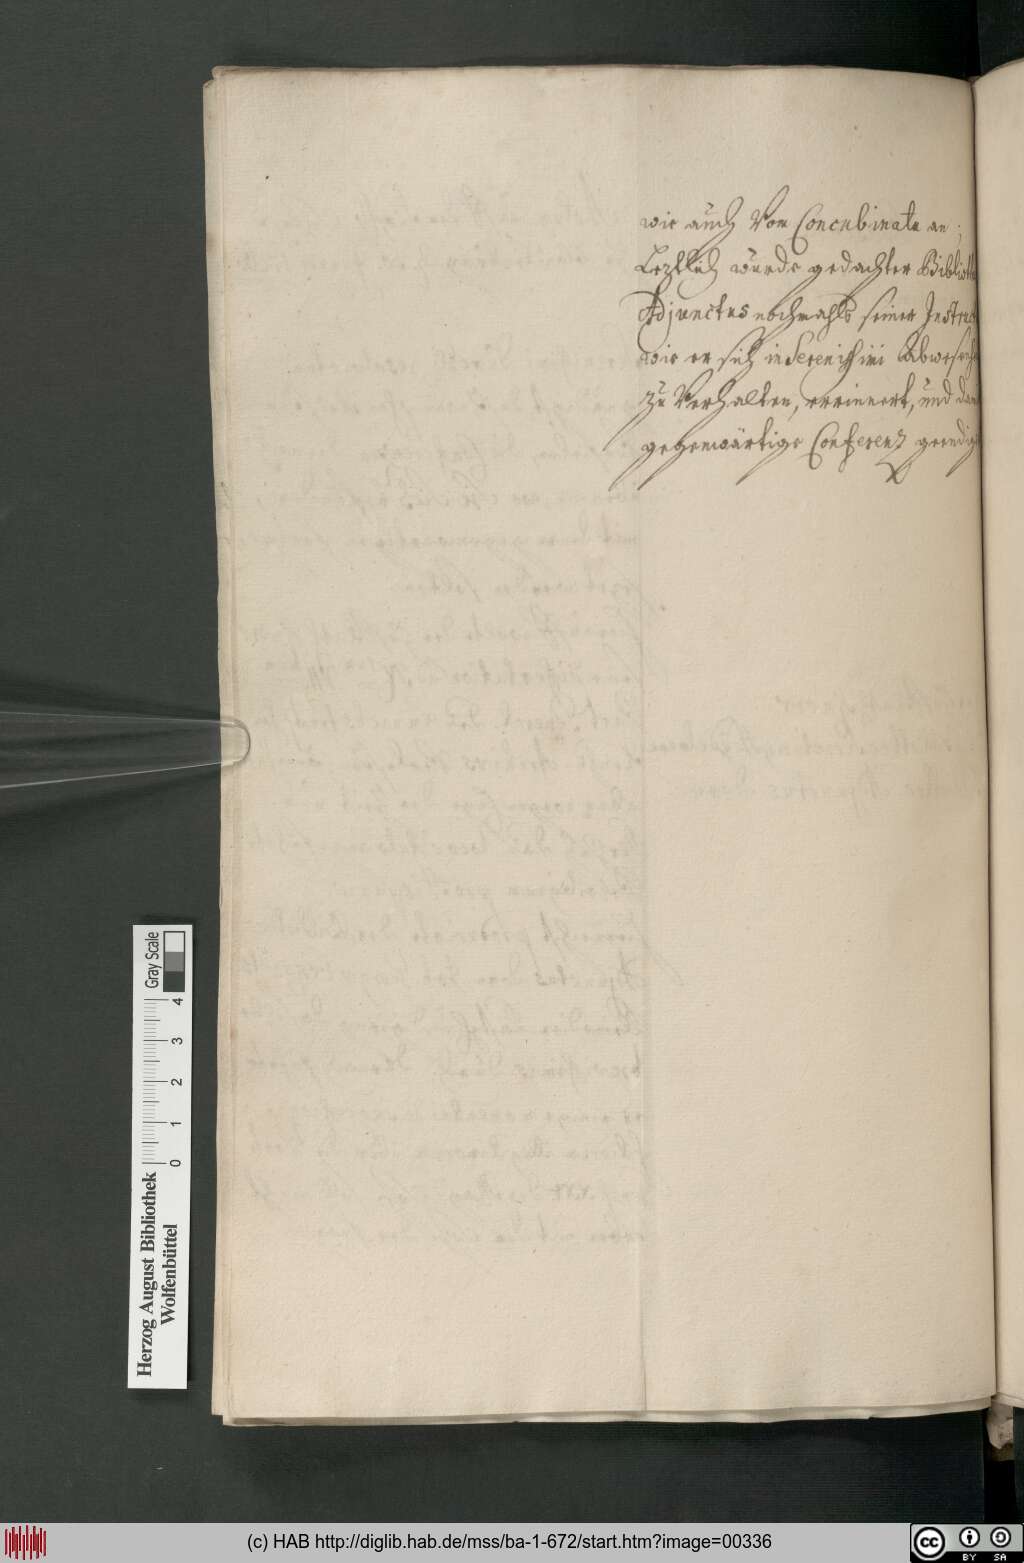 wie auch Vom Concubinatu an;
Leztlich wurde gedachter Biblioth
Adjunctus nochmahls seiner Instruct
wie er sich in Serenissimi Abwesenh
zu Verhalten, errinnert, und dam
gegenwärtige Conferenz geendig
Gray Scale
0 1 2 3 4
Herzog August Bibliothek
Wolfenbüttel
(c) HAB http://diglib.hab.de/mss/ba-1-672/start.htm?image=00336
cc BY SA